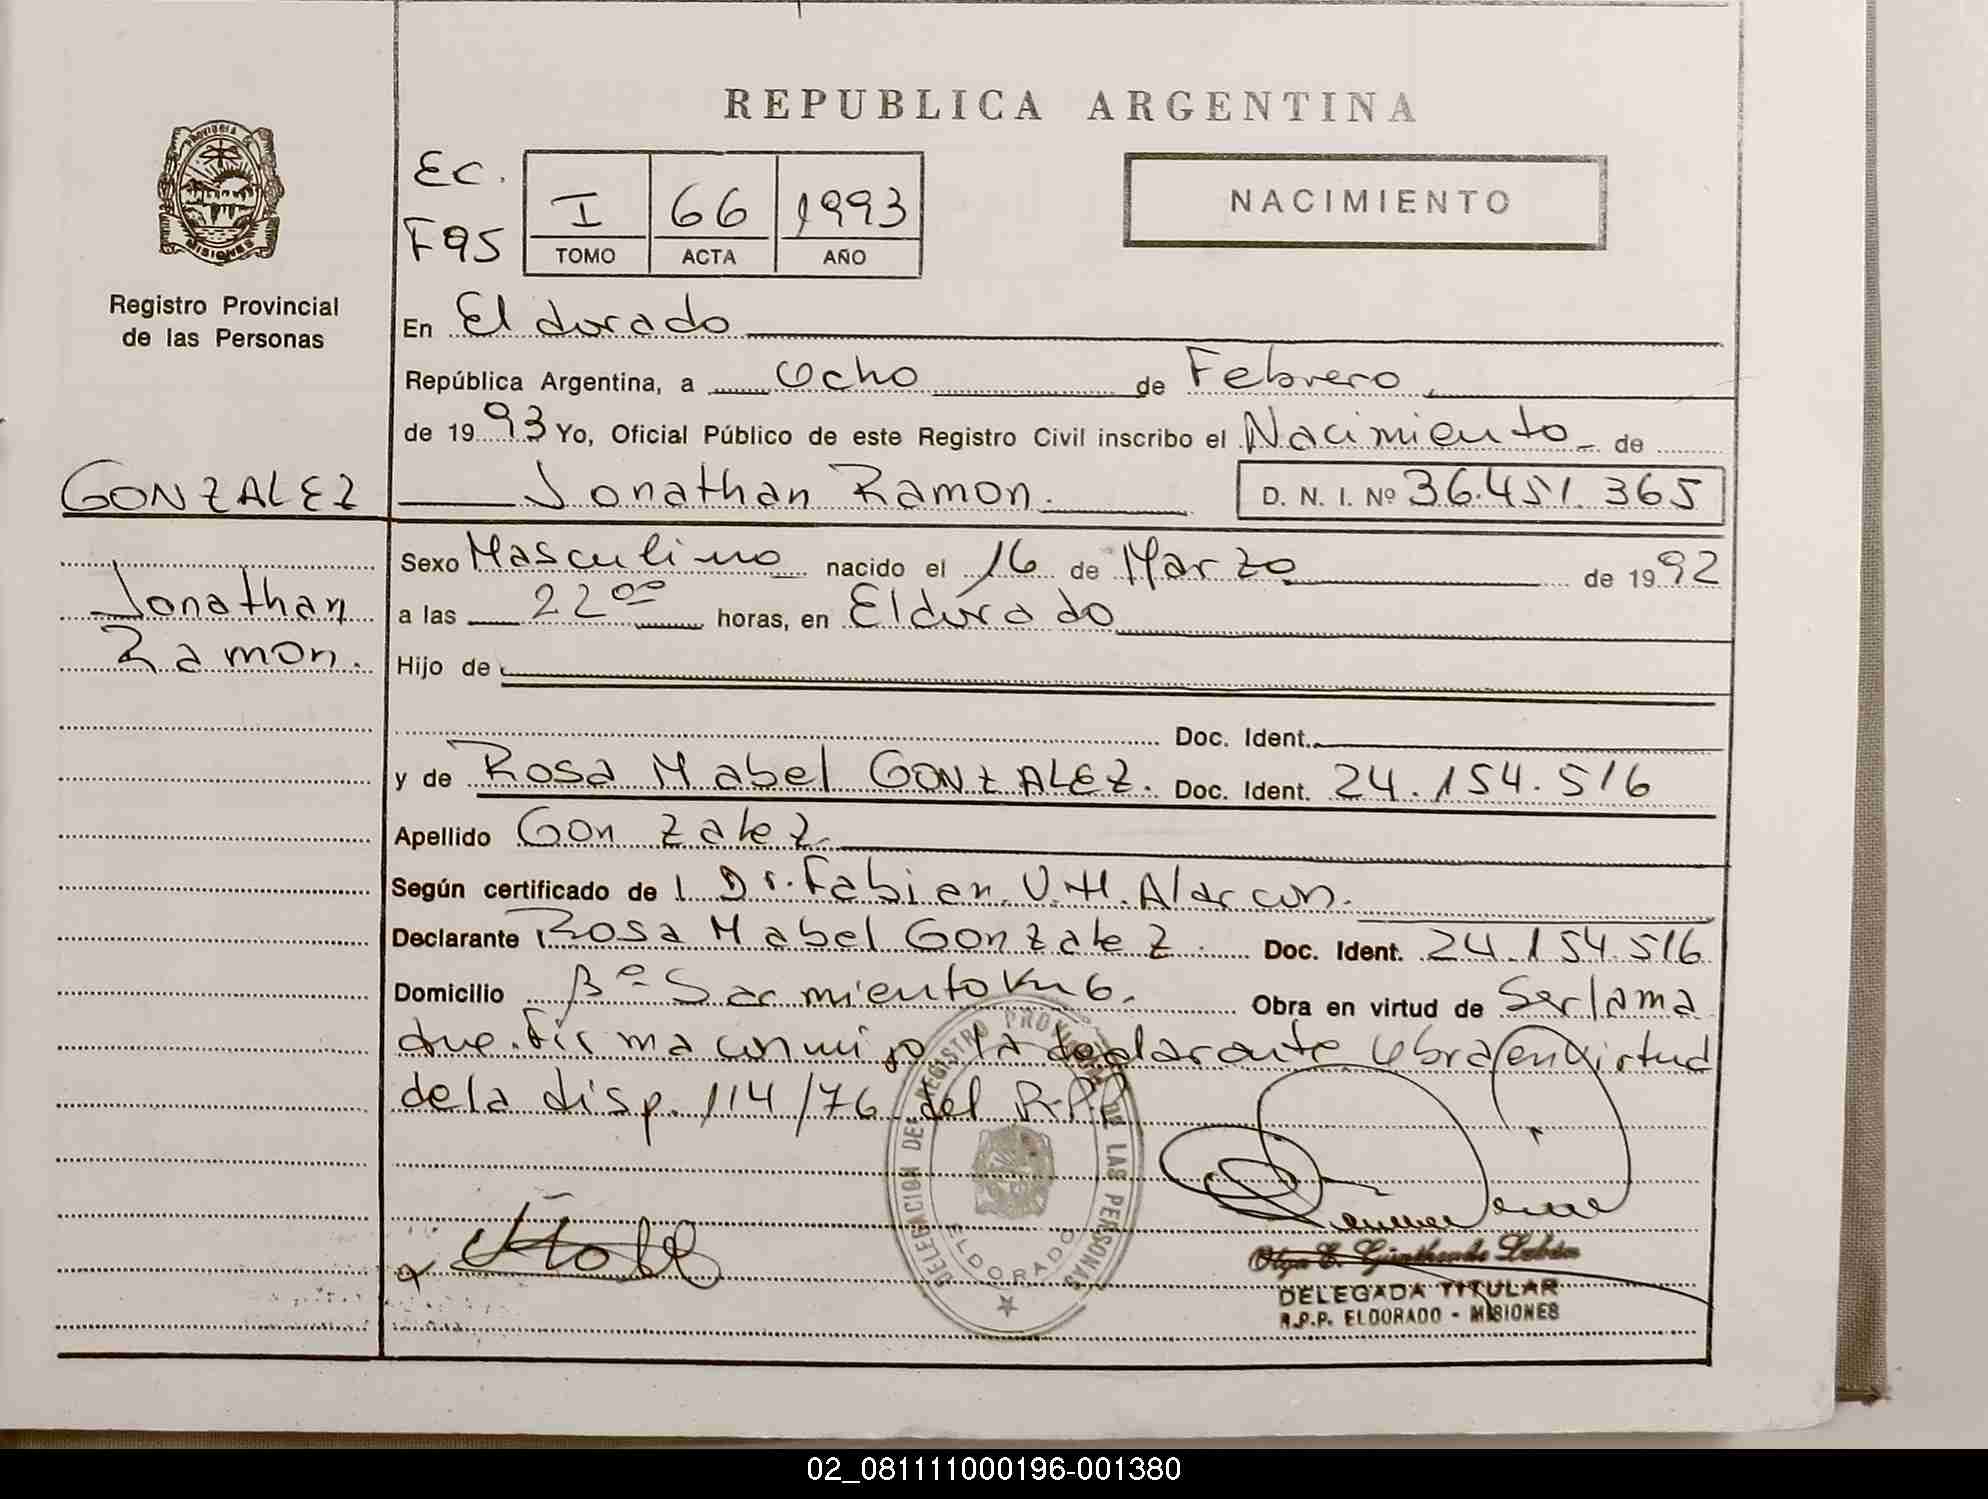 REPUBLICA ARGENTINA
PROVINCIA DE
MISIONES
Registro Provincial
de las Personas
EC.
F95
I 66 1993
TOMO ACTA AÑO
NACIMIENTO
En Eldorado
República Argentina, a Ocho de Febrero
de 1993 Yo, Oficial Público de este Registro Civil inscribo el Nacimiento de
GONZALEZ Jonathan Ramon. D. N. I. Nº 36.451.365
Sexo Masculino nacido el 16 de Marzo de 1992
Jonathan a las 22 00 horas, en Eldorado
Ramon. Hijo de
Doc. Ident.
y de Rosa Mabel GONZALEZ. Doc. Ident. 24.154.516
Apellido Gonzalez
Según certificado de Dr. Fabian V.H. Alarcon.
Declarante Rosa Mabel Gonzalez. Doc. Ident. 24.154.516
Domicilio Bº Sarmiento Km 6. Obra en virtud de Ser la ma
dre. Firma conmigo la declarante obra en virtud
de la disp. 114/76 del R.P.P
DELEGACION DEL REGISTRO PROVINCIAL DE LAS PERSONAS
ELDORADO
DELEGADA TITULAR
R.P.P. ELDORADO - MISIONES
02_081111000196-001380